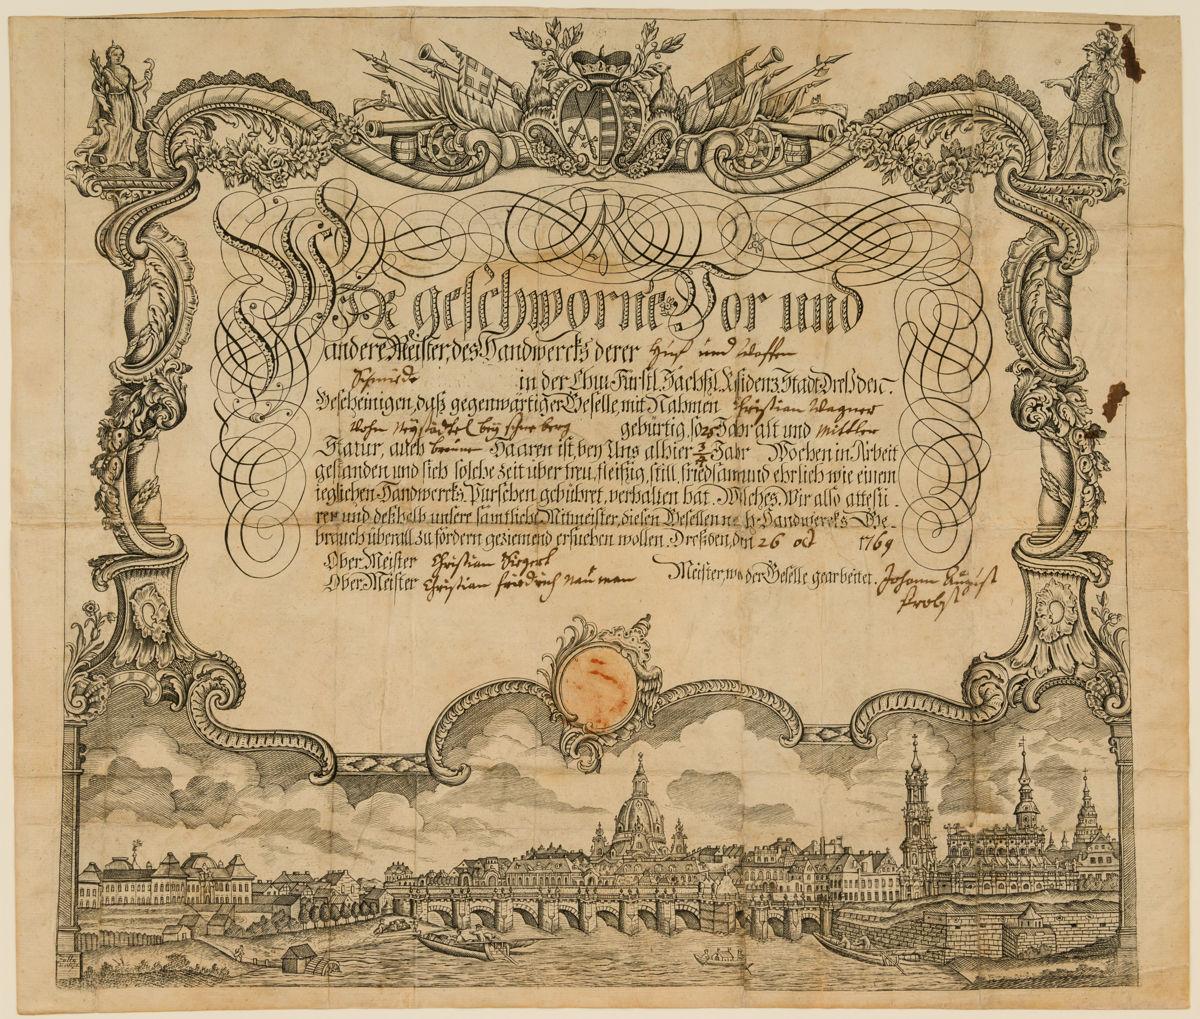 Wir geschworne Vor und
andere Meister, des Handwercks derer Huf und Waffen
Schmiede in der Chur Fürstl. Sächßl. Residenz Stadt Dreßden.
Bescheinigen, daß gegenwärtiger Geselle mit Nahmen Christian Wagner
Vohn Neystädtel bey Schneeberg gebürtig, so 25 Jahr alt und mittler
Statur, auch braunen Haaren ist, bey Uns allhier 3/4 Jahr Wochen in Arbeit
gestanden und sich solche Zeit über treu, fleißig, still, friedsam und ehrlich wie einem
ieglichen Handwercks Purschen gebühret, verhalten hat. Welches Wir also attesti-
ren und deßhalb unsere sämtliche Mitmeister, diesen Gesellen nach Handwercks Ge-
brauch überall zu fördern geziemend ersuchen wollen. Dreßden, den 26 oct 1769
Ober Meister Christian
Ober Meister Christian Friedrich Nauman
Meister, wo der Geselle gearbeitet. Johann August
Probst